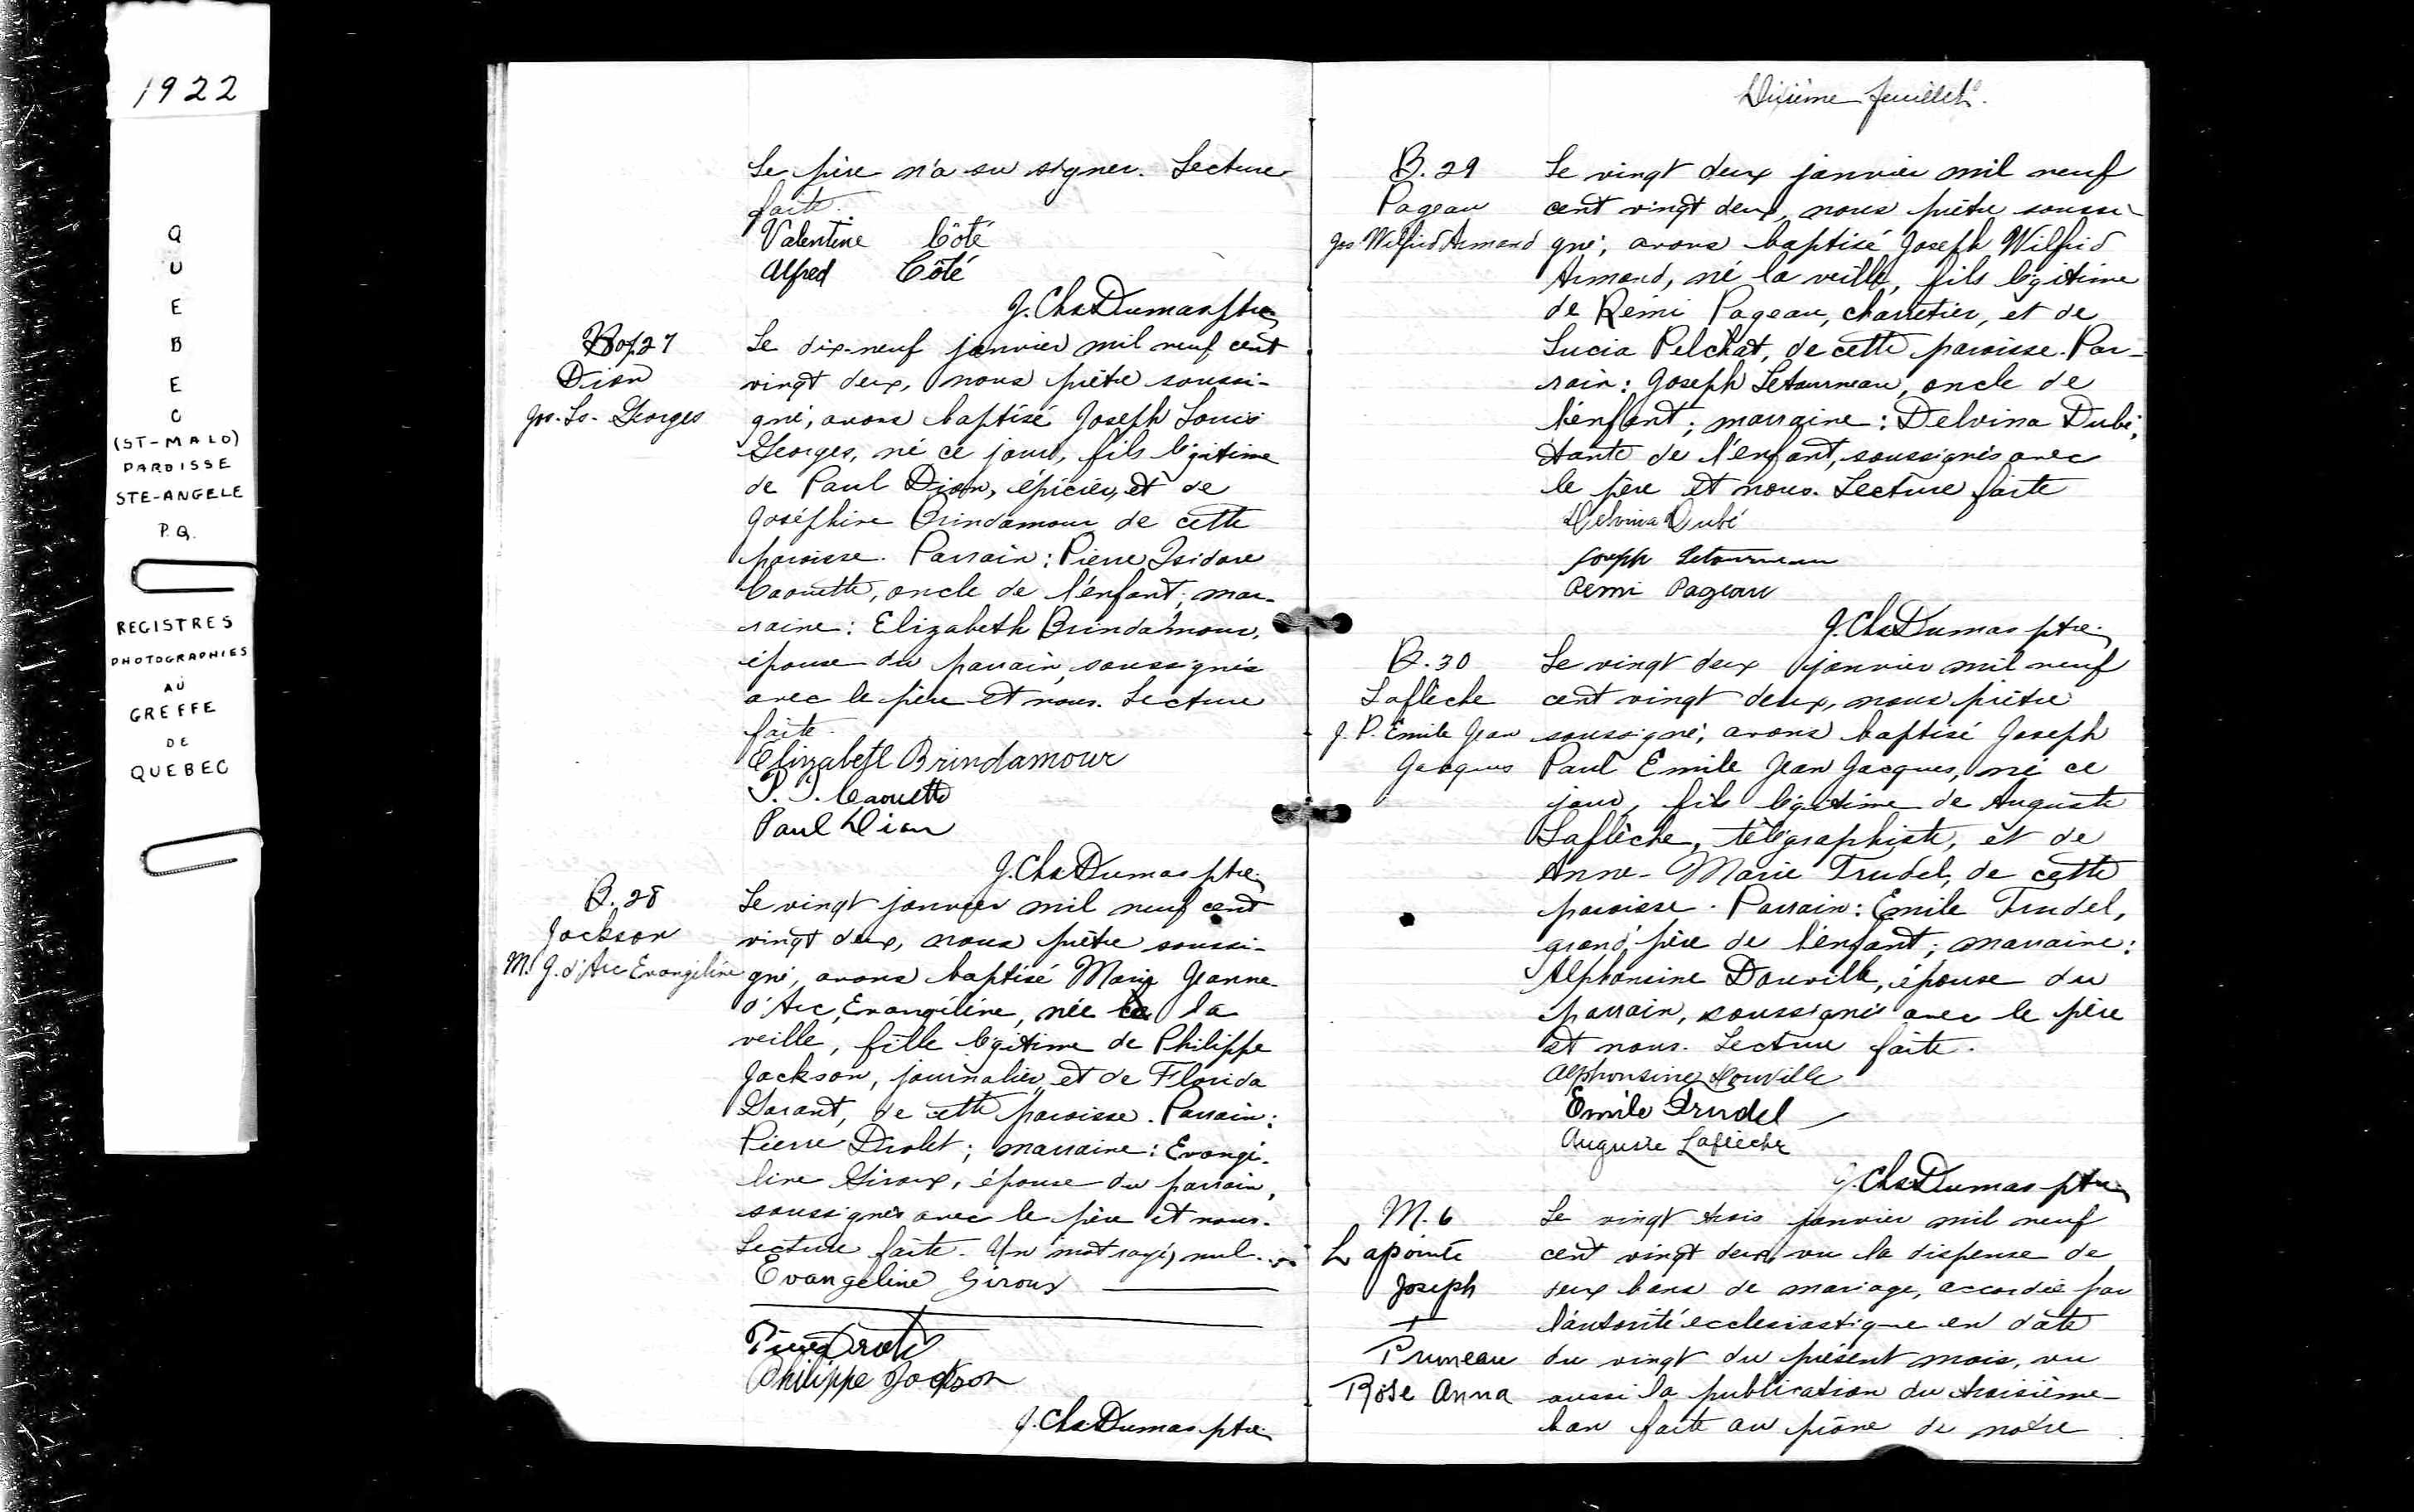 1922
QUEBEC
(ST-MALO)
PAROISSE
STE-ANGELE
P.Q.
REGISTRES
PHOTOGRAPHIES
AU
GREFFE
DE
QUEBEC
Le père n'a su signer. Lecture
faite.
Valentine Côté
Alfred Côté
J. Chs Dumas ptre
27
Dion
Jos. Ls. Georges
Le dix-neuf janvier mil neuf cent
vingt deux, nous prêtre soussi-
gné, avons baptisé Joseph Louis
Georges, né ce jour, fils légitime
de Paul Dion, épicier, et de
Joséphine Brindamour de cette
paroisse. Parrain: Pierre Isidore
Caouette, oncle de l'enfant; mar-
raine: Elizabeth Brindamour,
épouse du parrain, soussignés
avec le père et nous. Lecture
faite.
Elizabeth Brindamour
P. I. Caouette
Paul Dion
J. Chs Dumas ptre
B. 28
Jackson
M. J. d'Arc Evangéline
Le vingt janvier mil neuf cent
vingt deux, nous prêtre soussi-
gné, avons baptisé Marie Jeanne
d'Arc, Evangéline, née la
veille, fille légitime de Philippe
Jackson, journalier, et de Florida
Garant, de cette paroisse. Parrain:
Pierre Drolet; marraine: Evangé-
line Giroux, épouse du parrain,
soussignés avec le père et nous.
Lecture faite. Un mot rayé, nul.
Evangeline Giroux
Pierre Drolet
Philippe Jackson
J. Chs Dumas ptre
Dixième feuillet.
B. 29
Pageau
Jos Wilfrid Armand
Le vingt deux janvier mil neuf
cent vingt deux, nous prêtre soussi-
gné, avons baptisé Joseph Wilfrid
Armand, né la veille, fils légitime
de Rémi Pageau, charretier, et de
Lucia Pelchat, de cette paroisse. Par-
rain: Joseph Letourneau, oncle de
l'enfant; marraine: Delvina Dubé,
tante de l'enfant, soussignés avec
le père et nous. Lecture faite
Delvina Dubé
Joseph Letourneau
Remi Pageau
J. Chs Dumas ptre
B. 30
Laflèche
J. P. Emile Jean
Jacques
Le vingt deux janvier mil neuf
cent vingt deux, nous prêtre
soussigné, avons baptisé Joseph
Paul Emile Jean Jacques, né ce
jour, fils légitime de Auguste
Laflèche, télégraphiste, et de
Anne-Marie Trudel, de cette
paroisse. Parrain: Emile Trudel,
grand'père de l'enfant; marraine:
Alphonsine Douville, épouse du
parrain, soussignés avec le père
et nous. Lecture faite.
Alphonsine Douville
Emile Trudel
Auguste Laflèche
J. Chs Dumas ptre
M. 6
Lapointe
Joseph
+
Pruneau
Rose Anna
Le vingt trois janvier mil neuf
cent vingt deux vu la dispense de
deux bans de mariage, accordée par
l'autorité ecclésiastique en date
du vingt du présent mois, vu
aussi la publication du troisième
ban faite au prône de notre